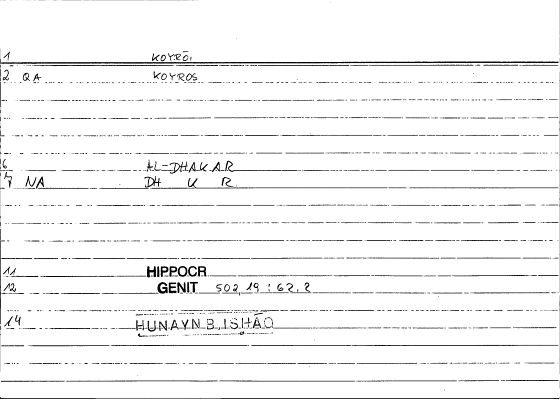 1 KOYRŌI
2 QA KOYROS
6 AL-DHAKAR
7 NA DH K R
11 HIPPOCR
12 GENIT 502,19 : 62.2
14 HUNAYN B. ISḤĀQ